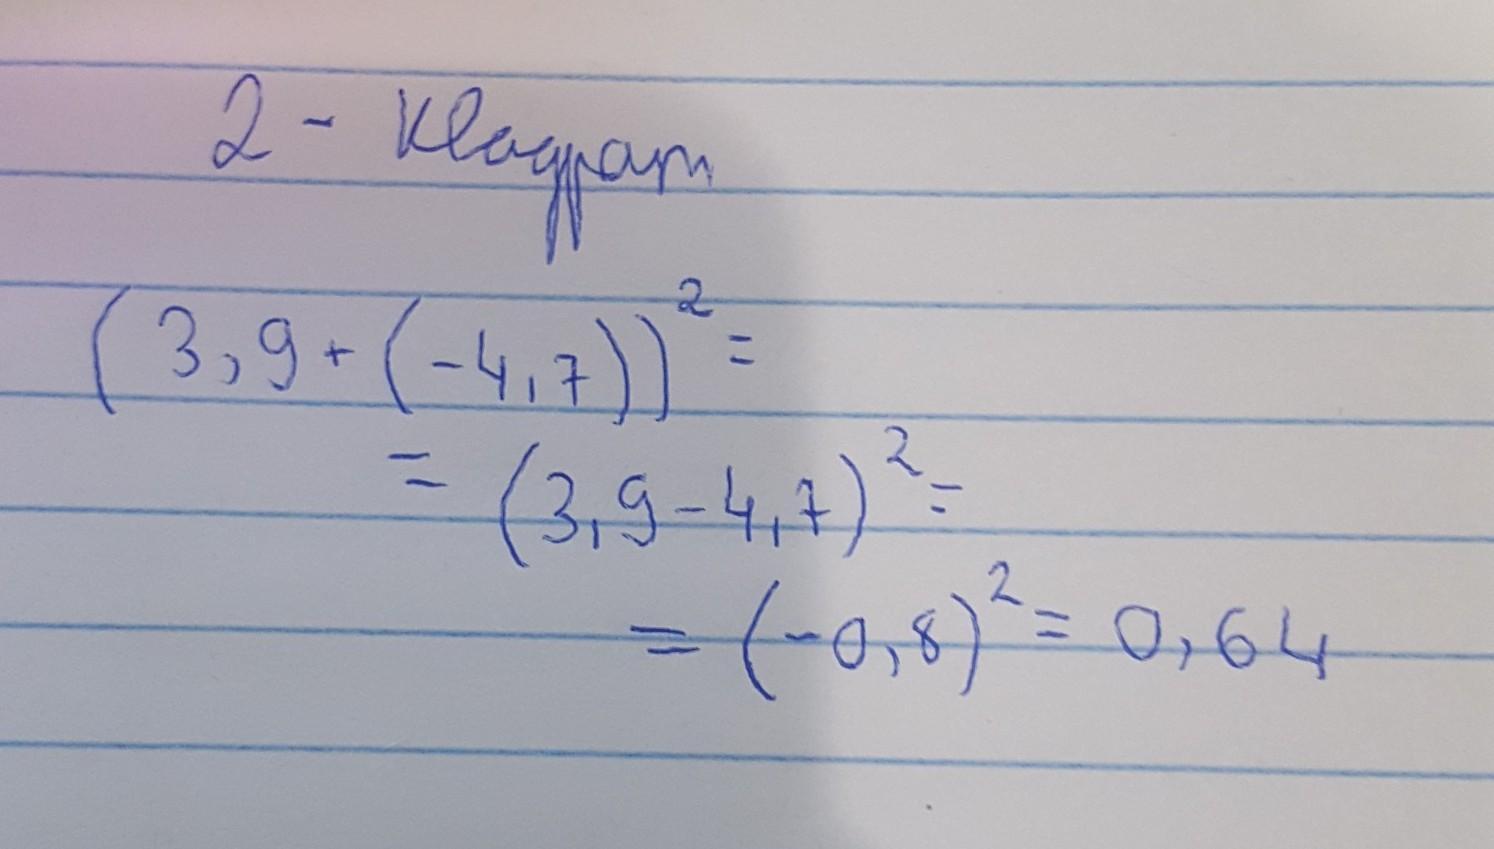 2 - Квадрат
(3,9+(-4,7))²=
= (3,9-4,7)²=
= (-0,8)²= 0,64